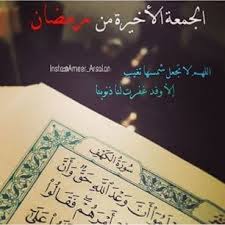 الجمعة الأخيرة من رمضان
Insta@Ameer_Arsalan
اللهم لا تجعل شمسها تغيب
إلا وقد غفرت لنا ذنوبنا
سورة الكهف
وَعْدَ اللَّهِ حَقٌّ وَأَنَّ
أَمْرَهُمْ فَقَالُوا